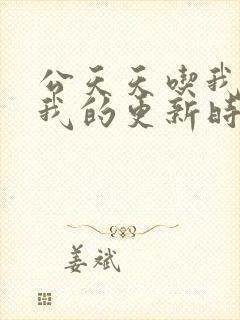 公天天喫我
我的更新時
姜斌